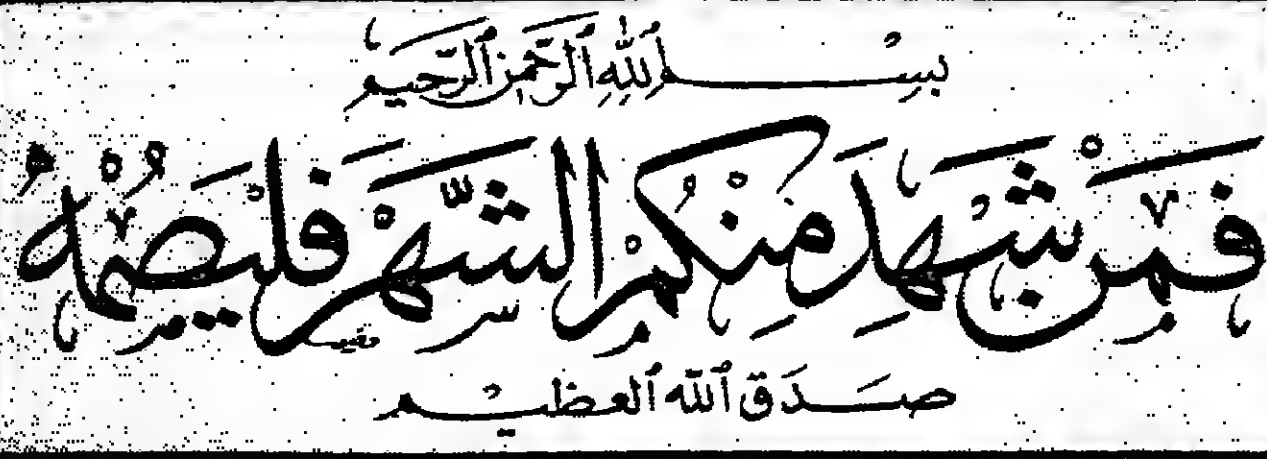 بِسْمِ ٱللَّهِ ٱلرَّحْمَٰنِ ٱلرَّحِيمِ
فَمَنْ شَهِدَ مِنْكُمُ الشَّهْرَ فَلْيَصُمْهُ
صَدَقَ ٱللَّه ٱلعظيم